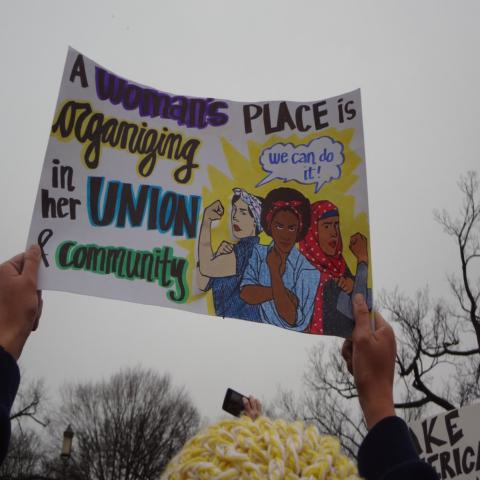 A WOMAN'S PLACE is
organizing
in
her UNION
& community
we can do
it!
AKE
ERICA